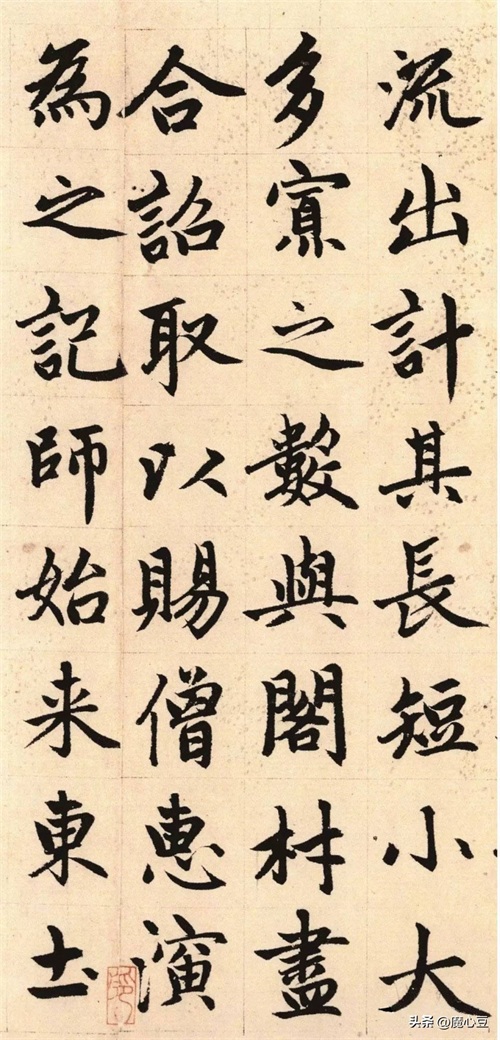 流出計其長短小大
多寡之數與閣材盡
合詔取以賜僧惠演
為之記師始来東土
头条 @魔心豆